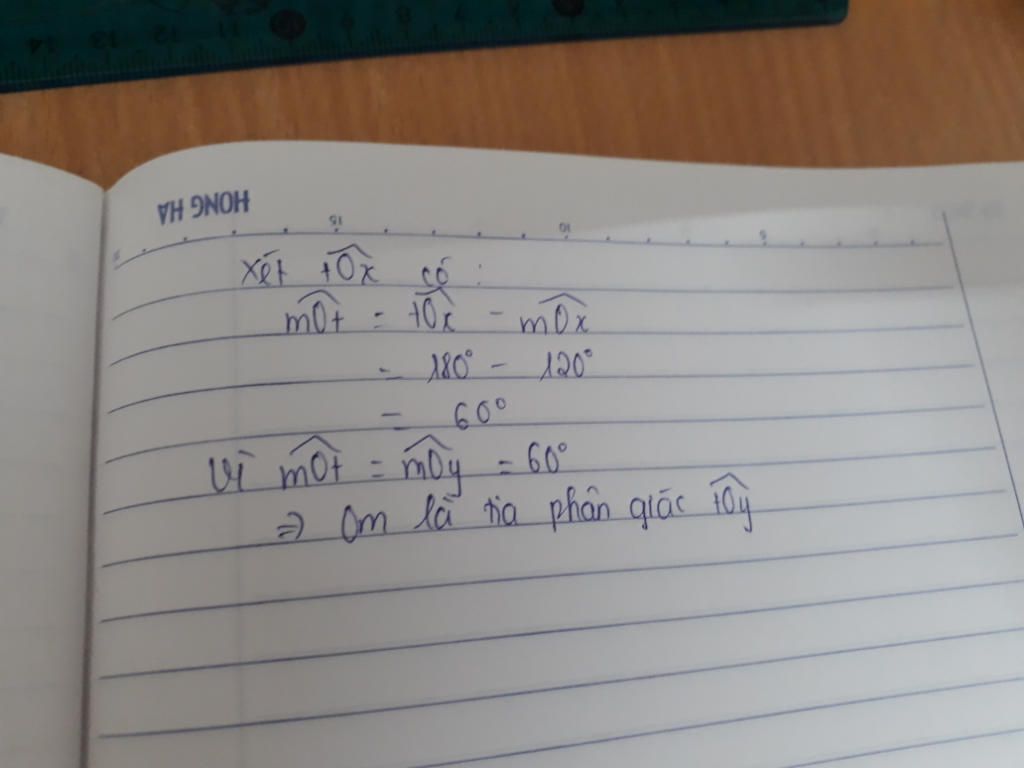 14 13 12 11
HONG HA
15 10 5
Xét tOx có :
mOt = tOx - mOx
= 180° - 120°
= 60°
Vì mOt = mOy = 60°
=> Om là tia phân giác tOy